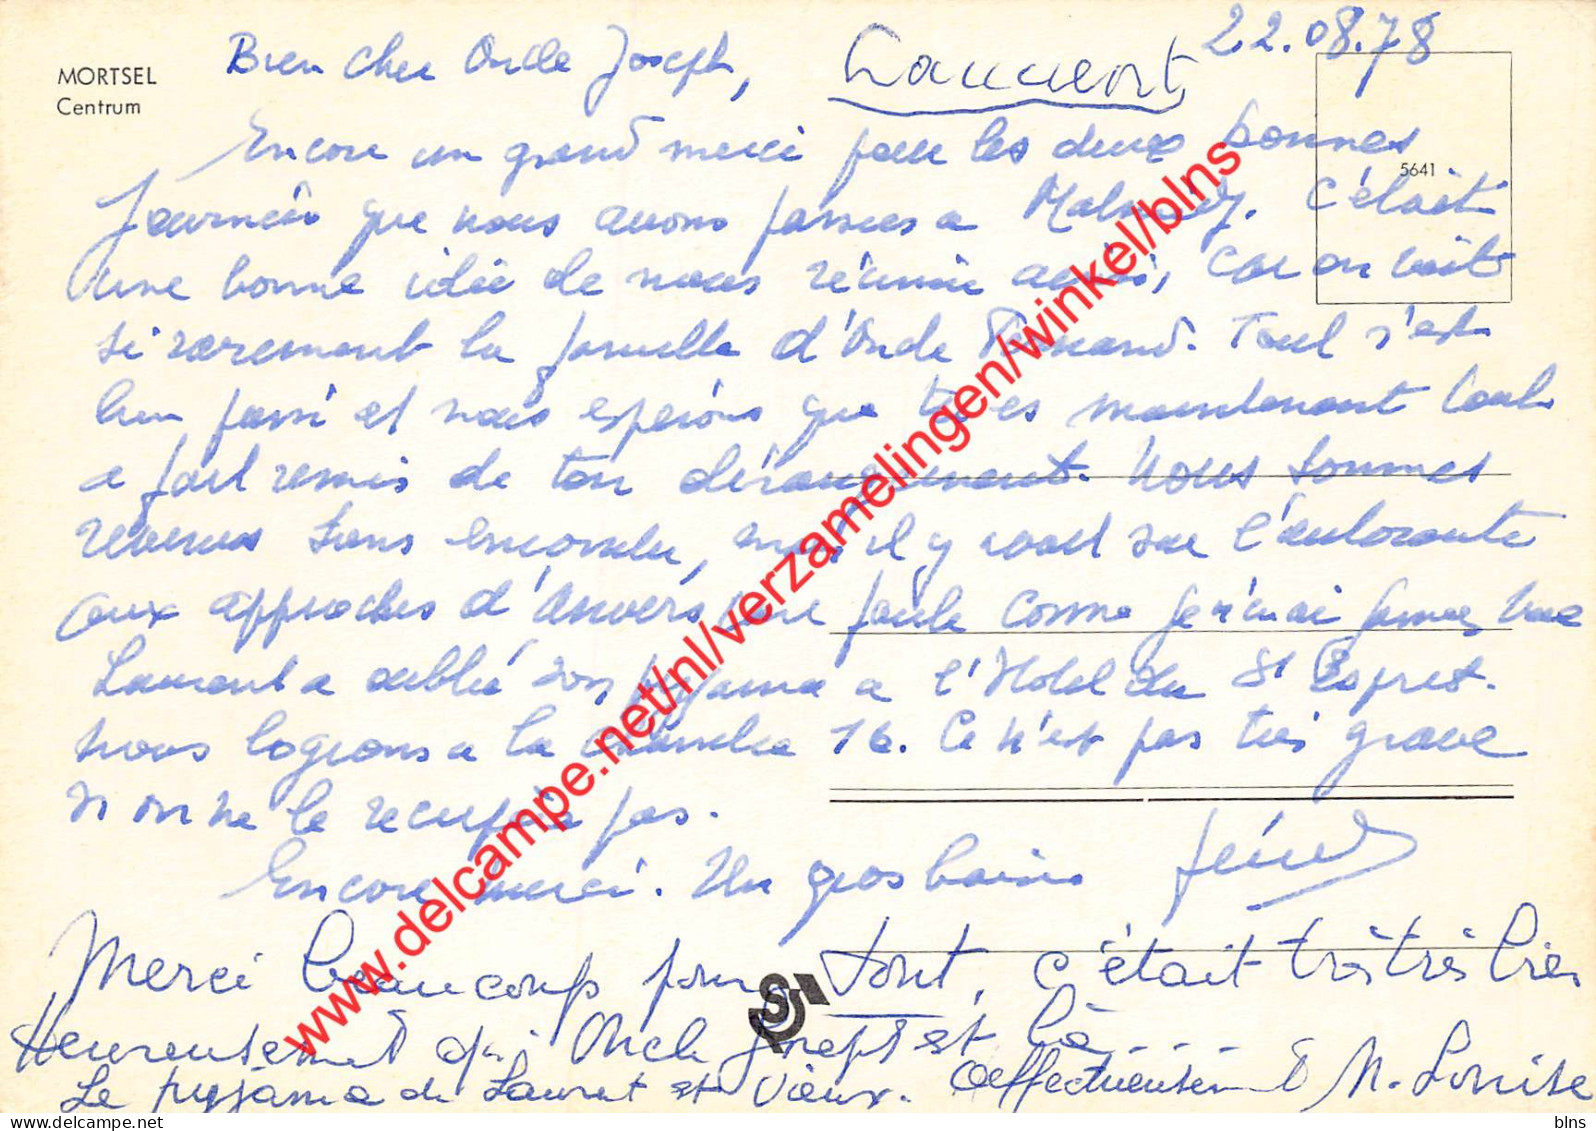 MORTSEL
Centrum
22.08.78
Bien cher Oncle Joseph, Laurent
Encore un grand merci pour les deux bonnes
5641
journées que nous avons passées a Malmédy. C'était
une bonne idée de nous réunir aussi, car on voit
si rarement la famille d'Oncle Fernand. Tout s'est
bien passé et nous espérons que tu es maintenant tout
a fait remis de ton dérangement. Nous sommes
revenus sans encombre, mais il y avait sur l'autoroute
aux approches d'Anvers une foule comme je n'en ai jamais vue
Laurent a oublié son pyjama a l'Hotel du St Esprit.
Nous logions a la chambre 16. Ce n'est pas très grave
si on ne le recupère pas.
Encore merci. Un gros baiser
Merci beaucoup pour tout, c'était très très bien
Heureusement qu' Oncle Joseph est là....
Le pyjama de Laurent est vieux. Affectueusement M. Louise
www.delcampe.net/nl/verzamelingen/winkel/blns
blns